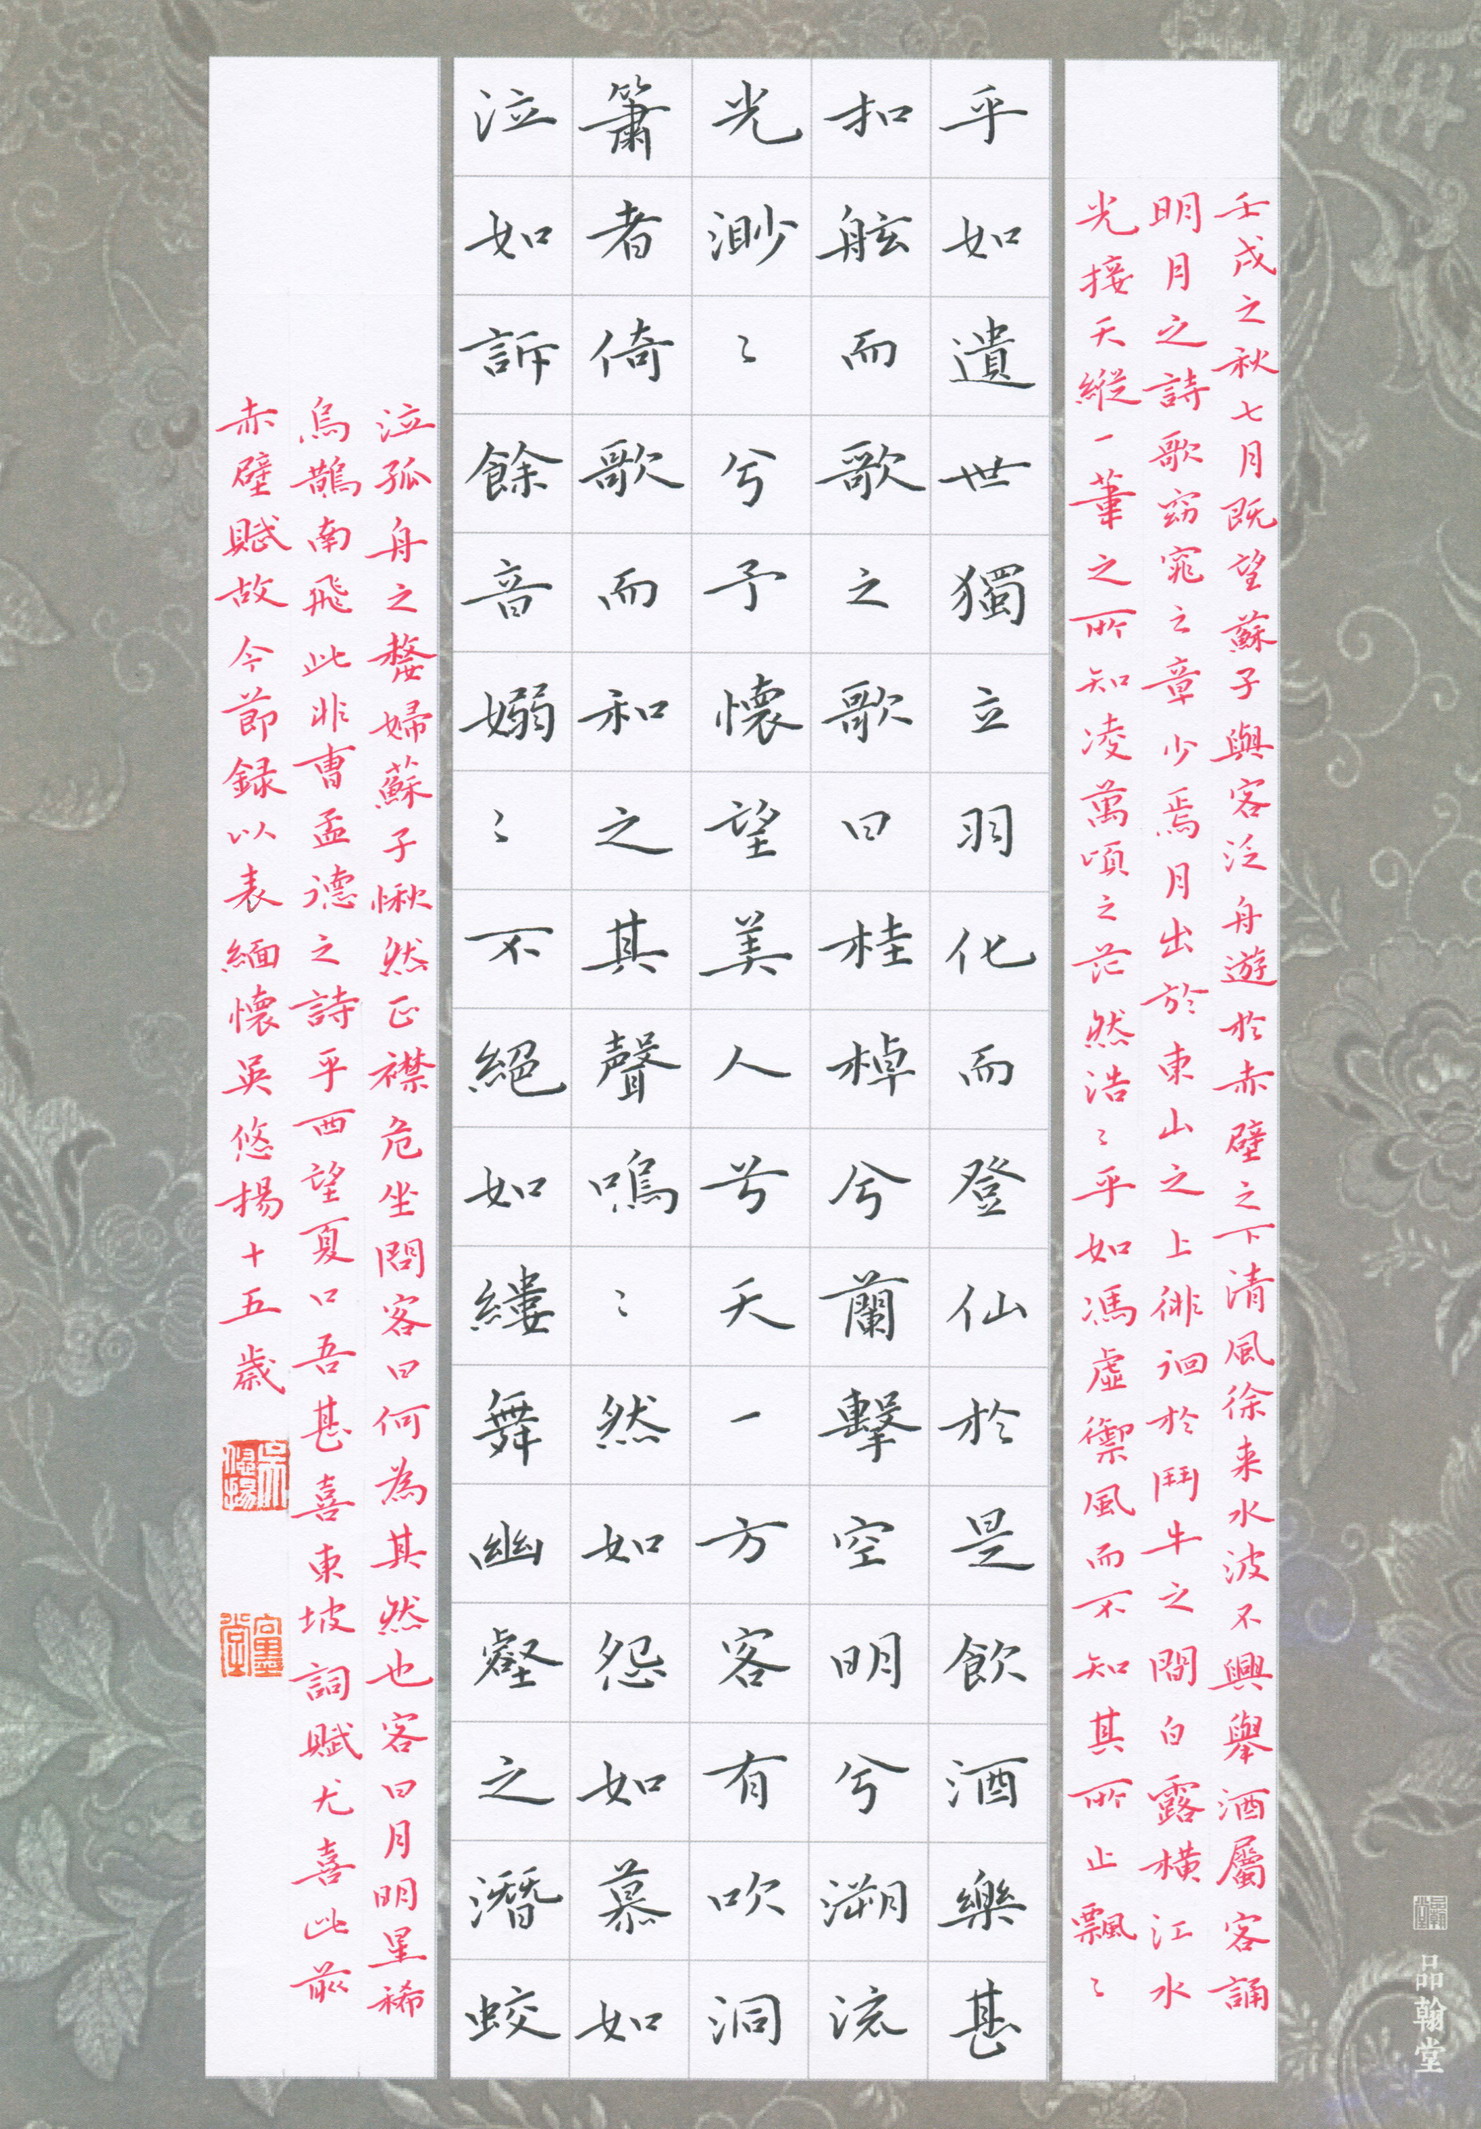 壬戌之秋七月既望蘇子與客泛舟遊於赤壁之下清風徐来水波不興舉酒屬客誦
明月之詩歌窈窕之章少焉月出於東山之上徘徊於鬥牛之間白露橫江水
光接天縱一葦之所知凌萬頃之茫然浩〻乎如馮虛御風而不知其所止飄〻
乎如遺世獨立羽化而登仙於是飲酒樂甚
扣舷而歌之歌曰桂棹兮蘭擊空明兮溯流
光渺〻兮予懷望美人兮天一方客有吹洞
簫者倚歌而和之其聲嗚〻然如怨如慕如
泣如訴餘音嫋〻不絕如縷舞幽壑之潛蛟
泣孤舟之嫠婦蘇子愀然正襟危坐問客曰何為其然也客曰月明星稀
烏鵲南飛此非曹孟德之詩乎西望夏口吾甚喜東坡詞賦尤喜此前
赤壁賦故今節録以表緬懷吳悠揚十五歲
吳悠揚
品翰堂